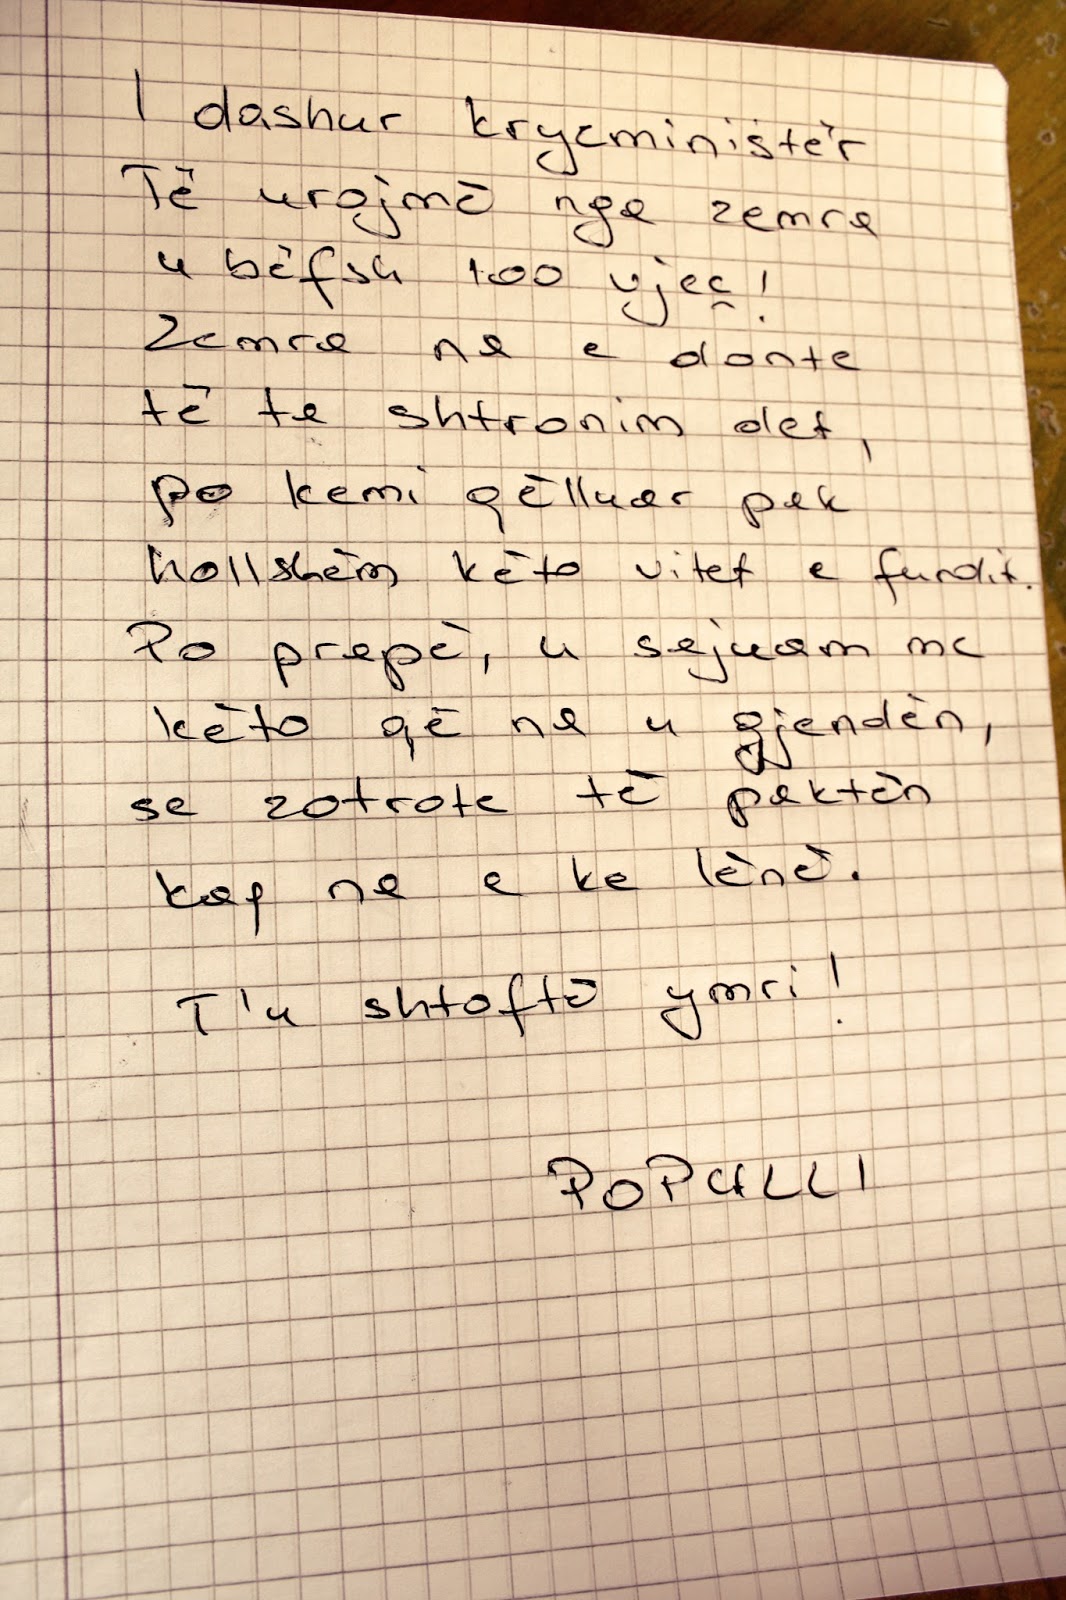 I dashur kryeministër
Të urojmë nga zemra
u bëfsh 100 vjeç!
Zemra na e donte
të ta shtronim det,
po kemi qëlluar pak
hollshëm këto vitet e fundit.
Po prapë, u sajuam me
këto që na u gjendën,
se zotrote të paktën
kaq na e ke lënë.
T'u shtoftë ymri!
POPULLI